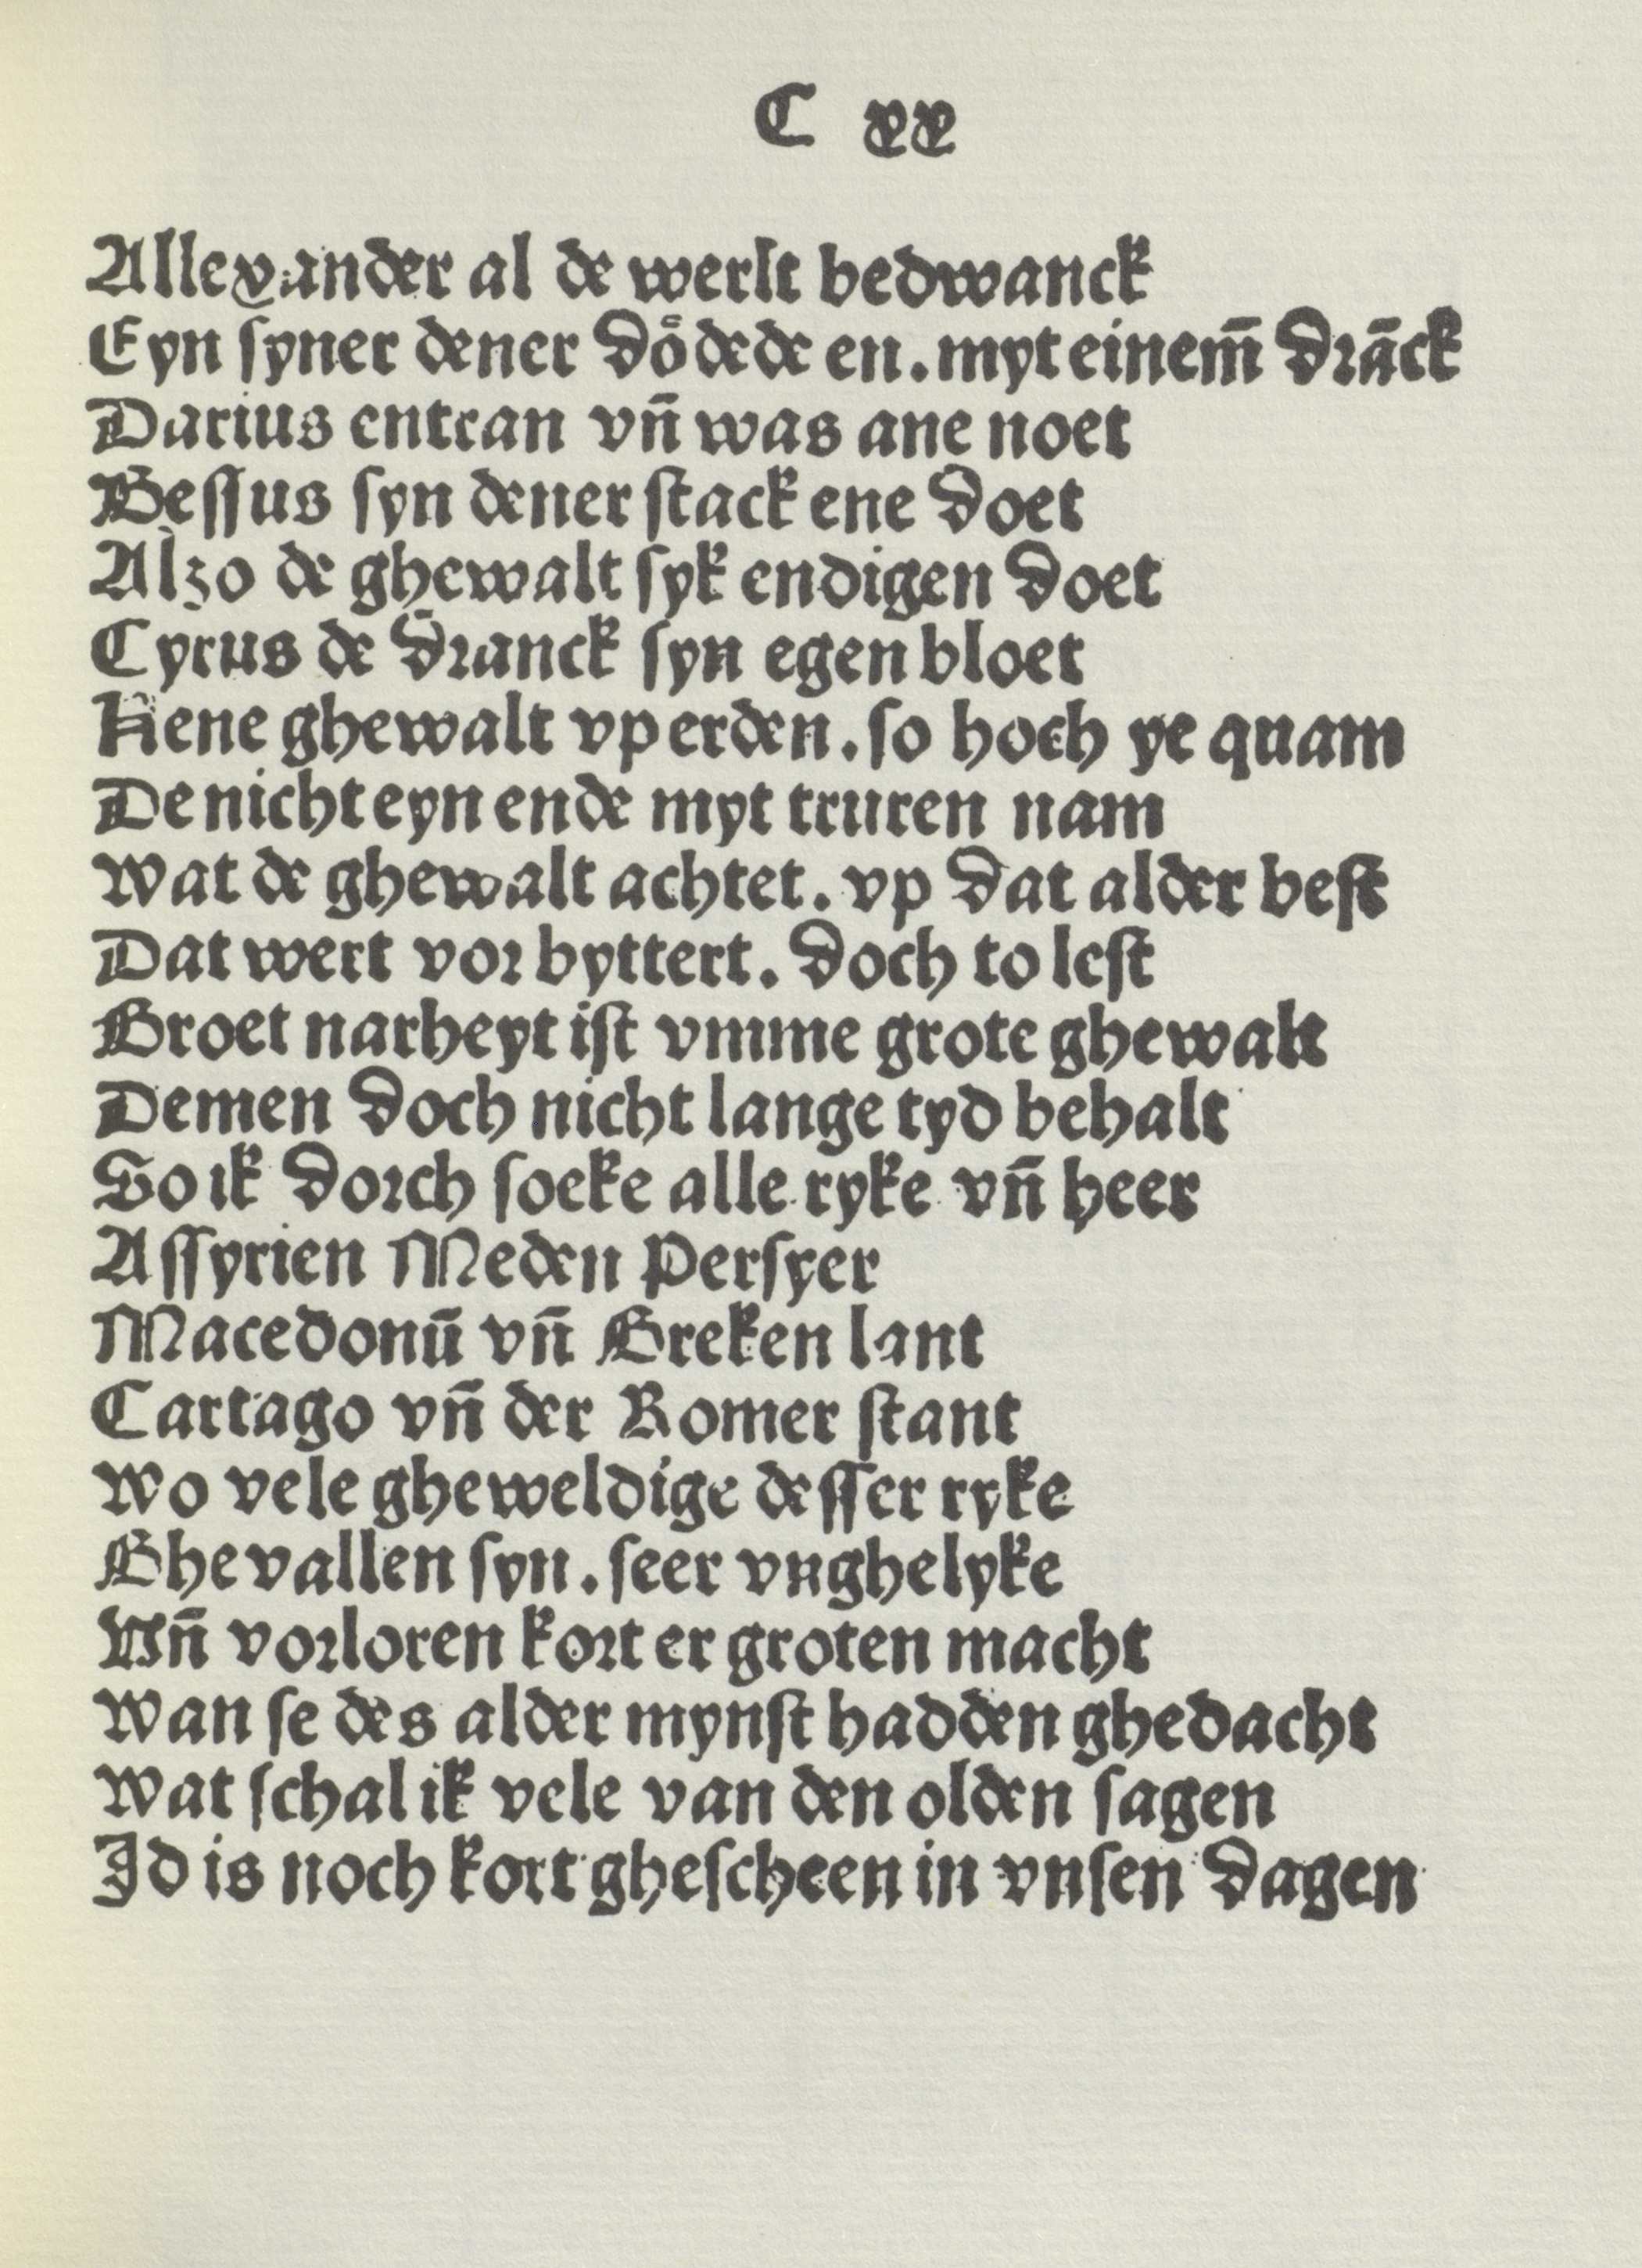 C xx
Allexander al de werlt bedwanck
Eyn ſyner dener doͤdede en. myt einem̄ drāck
Darius entran vn̄ was ane noet
Beſſus ſyn dener ſtack ene doet
Alzo de ghewalt ſyk endigen doet
Cyrus de dranck ſyn egen bloet
Kene ghewalt vp erden. ſo hoch ye quam
De nicht eyn ende myt truren nam
Wat de ghewalt achtet. vp dat alder beſt
Dat wert vor byttert. doch to leſt
Groet narheyt iſt vmme grote ghewalt
Demen doch nicht lange tyd behalt
So ik dorch ſoeke alle ryke vn̄ heer
Aſſyrien Meden Perſyer
Macedonū vn̄ Greken lant
Cartago vn̄ der Romer ſtant
Wo vele gheweldige deſſer ryke
Ghevallen ſyn. ſeer vnghelyke
Vn̄ vorloren kort er groten macht
Wan ſe des alder mynſt hadden ghedacht
Wat ſchal ik vele van den olden ſagen
Id is noch kort gheſcheen in vnſen dagen